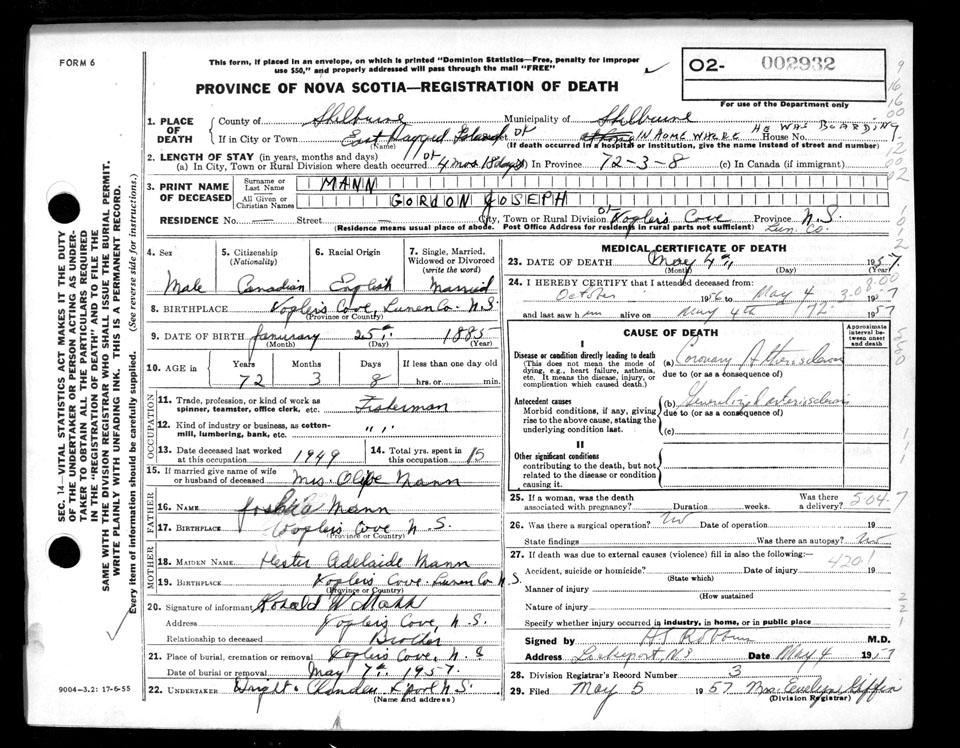 FORM 6
This form, if placed in an envelope, on which is printed "Dominion Statistics—Free, penalty for improper
use $50," and properly addressed will pass through the mail "FREE"
O2- 002932
PROVINCE OF NOVA SCOTIA—REGISTRATION OF DEATH
For use of the Department only
1. PLACE OF DEATH
County of Shelburne Municipality of Shelburne
If in City or Town East Ragged Island (Name) at IN HOME WHERE HE WAS BOARDING House No.
(If death occurred in a hospital or institution, give the name instead of street and number)
2. LENGTH OF STAY (in years, months and days)
(a) In City, Town or Rural Division where death occurred 4 mos 18 days (b) In Province 72-3-8 (c) In Canada (if immigrant)
3. PRINT NAME OF DECEASED
Surname or Last Name MANN
All Given or Christian Names GORDON JOSEPH
RESIDENCE No. — Street — City, Town or Rural Division of Voglers Cove Province N.S.
(Residence means usual place of abode. Post Office Address for residents in rural parts not sufficient) Lun. Co.
4. Sex Male
5. Citizenship (Nationality) Canadian
6. Racial Origin English
7. Single, Married, Widowed or Divorced (write the word) Married
8. BIRTHPLACE Voglers Cove, Lunen Co. N.S.
(Province or Country)
9. DATE OF BIRTH January 25th 1885
(Month) (Day) (Year)
10. AGE in Years Months Days If less than one day old
72 3 8 hrs. or min.
OCCUPATION
11. Trade, profession, or kind of work as spinner, teamster, office clerk, etc. Fisherman
12. Kind of industry or business, as cotton-mill, lumbering, bank, etc. " "
13. Date deceased last worked at this occupation 1949
14. Total yrs. spent in this occupation 15
15. If married give name of wife or husband of deceased Mrs. Olive Mann
FATHER
16. NAME Joshua Mann
17. BIRTHPLACE Voglers Cove N.S.
(Province or Country)
MOTHER
18. MAIDEN NAME Hester Adelaide Mann
19. BIRTHPLACE Voglers Cove - Lunen Co. N.S.
(Province or Country)
20. Signature of informant Ronald W Mann
Address Voglers Cove, N.S.
Relationship to deceased Brother
21. Place of burial, cremation or removal Voglers Cove, N.S
Date of burial or removal May 7th 1957.
22. UNDERTAKER Wright & Chandler L'pool N.S.
(Name and address)
MEDICAL CERTIFICATE OF DEATH
23. DATE OF DEATH May 4th 1957.
(Month) (Day) (Year)
24. I HEREBY CERTIFY that I attended deceased from:
October 1956 to May 4 1957
and last saw him alive on May 4th 1957
CAUSE OF DEATH
Approximate interval between onset and death
I
Disease or condition directly leading to death
(This does not mean the mode of dying, e.g., heart failure, asthenia, etc. It means the disease, injury, or complication which caused death.)
(a) Coronary Atherosclerosis
due to (or as a consequence of)
Antecedent causes
Morbid conditions, if any, giving rise to the above cause, stating the underlying condition last.
(b) Generalized arteriosclerosis
due to (or as a consequence of)
(c)
II
Other significant conditions
contributing to the death, but not related to the disease or condition causing it.
25. If a woman, was the death associated with pregnancy? Duration weeks. Was there a delivery?
504.7
26. Was there a surgical operation? No Date of operation 19
State findings Was there an autopsy? No
27. If death was due to external causes (violence) fill in also the following:—
420.1
Accident, suicide or homicide? Date of injury 19
(State which)
Manner of injury
(How sustained
Nature of injury
Specify whether injury occurred in industry, in home, or in public place
Signed by M.D.
Address Lockeport, N.S Date May 4 1957
28. Division Registrar's Record Number 3
29. Filed May 5 1957 Mrs. Evelyn Giffin
(Division Registrar)
SEC. 14—VITAL STATISTICS ACT MAKES IT THE DUTY
OF THE UNDERTAKER OR PERSON ACTING AS UNDER-
TAKER TO OBTAIN ALL THE PARTICULARS REQUIRED
IN THE "REGISTRATION OF DEATH" AND TO FILE THE
SAME WITH THE DIVISION REGISTRAR WHO SHALL ISSUE THE BURIAL PERMIT.
WRITE PLAINLY WITH UNFADING INK. THIS IS A PERMANENT RECORD.
Every item of information should be carefully supplied. (See reverse side for instructions.)
9004-3.2: 17-6-55